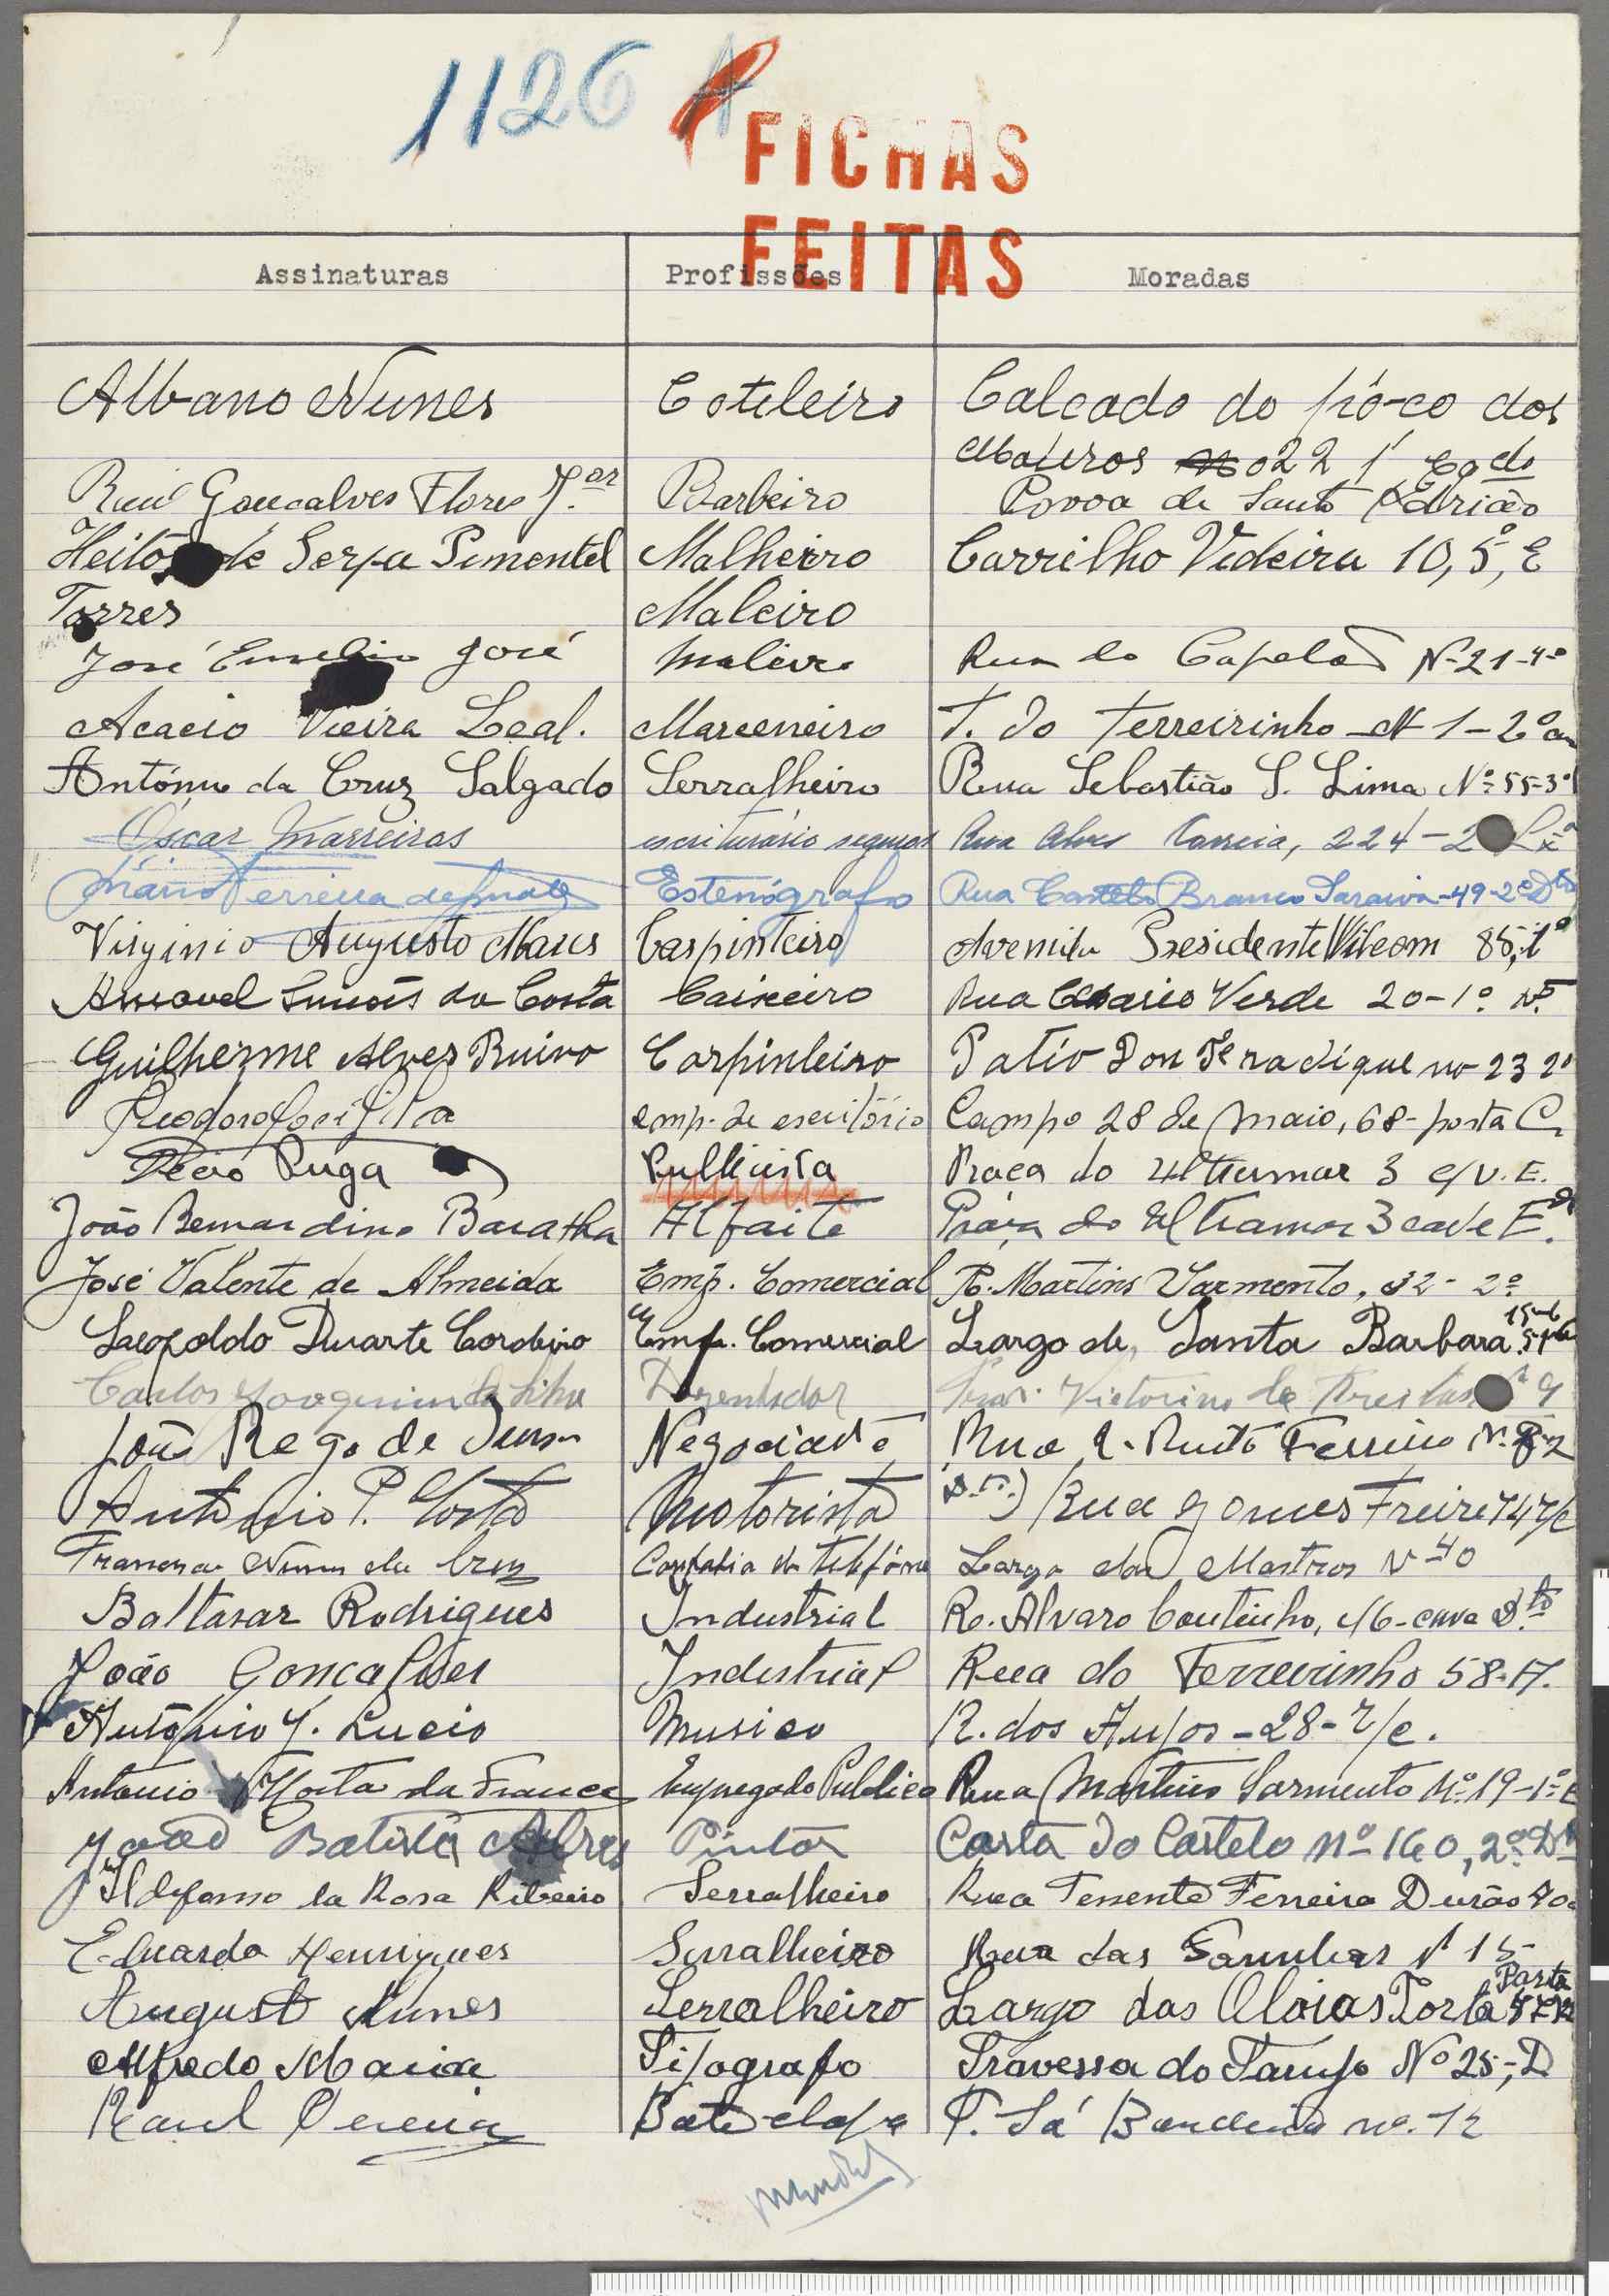 1126 A
FICHAS
FEITAS
Assinaturas Profissões Moradas
Albano Nunes Coteleiro Calcado do pó-co dos
Mouros no 22 1º
Raúl Goncalves Flores J.or Barbeiro Povoa de Santo Adrião
Heitor de Serpa Pimentel Malheiro Carrilho Videira 10, 5º, E
Torres Maleiro
José Emelio José maleiro Rua do Capelão Nº 21-4º
Acacio Vieira Leal. Marceneiro T. do Terreirinho Nº 1-2º
António da Cruz Salgado Serralheiro Rua Sebastião S. Lima Nº 55-3º
Óscar Marreiros escriturário seguros Rua Alves Correia, 224-2 Lxª
Mário Ferreira de Estenógrafo Rua Castelo Branco Saraiva-49-2º Dto
Virginio Augusto Carpinteiro Avenida Presidente Wilson 85, 1º
Simões da Costa Caixeiro Rua Cesario Verde 20-1º
Guilherme Alves Ruivo Carpinteiro Patio Don no 23 2º
Teodoro José emp. de escritório Campo 28 de Maio, 68-porta C
Décio Puga Publicista Praça do Ultramar 3 c/v. E.
João Bernardino Baratha Alfaite Praça do Ultramar 3 cave E.
José Valente de Almeida Emp. Comercial R. Martins Sarmento, 32-2º
Leopoldo Duarte Cordeiro Emp. Comercial Largo de Santa Barbara
Carlos Joaquim da Silva Victorino de Freitas 9
João Rego de Negociante Rua Ferreira N.
Antonio P. Costa Motorista Rua Gomes Freire 74 r/c
Nunes da Cruz Largo dos Mastros Nº 40
Baltasar Rodrigues Industrial R. Alvaro Coutinho, 46-cave D.to
João Goncalves Industrial Rua do Terreirinho 58-A.
António J. Lucio Musico R. dos Anjos-28-r/c.
Antonio Horta da Franca Empregado Publico Rua Martins Sarmento Nº 19-1º E
João Batista Alves Pintor Costa do Castelo nº 160, 2º Dº
Ildefonso da Rosa Ribeiro Serralheiro Rua Tenente Ferreira Durão 70
Eduardo Henriques Serralheiro Rua das
August Nunes Serralheiro Largo das Olaias Porta
Alfredo Maria Tipografo Travessa do Tarujo Nº 25, D
Raul Pereira Bate-chapa T. Sá Bandeira nº. 12